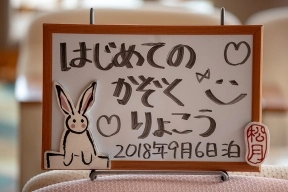 はじめての
かぞく
りょこう
2018年9月6日泊
松月